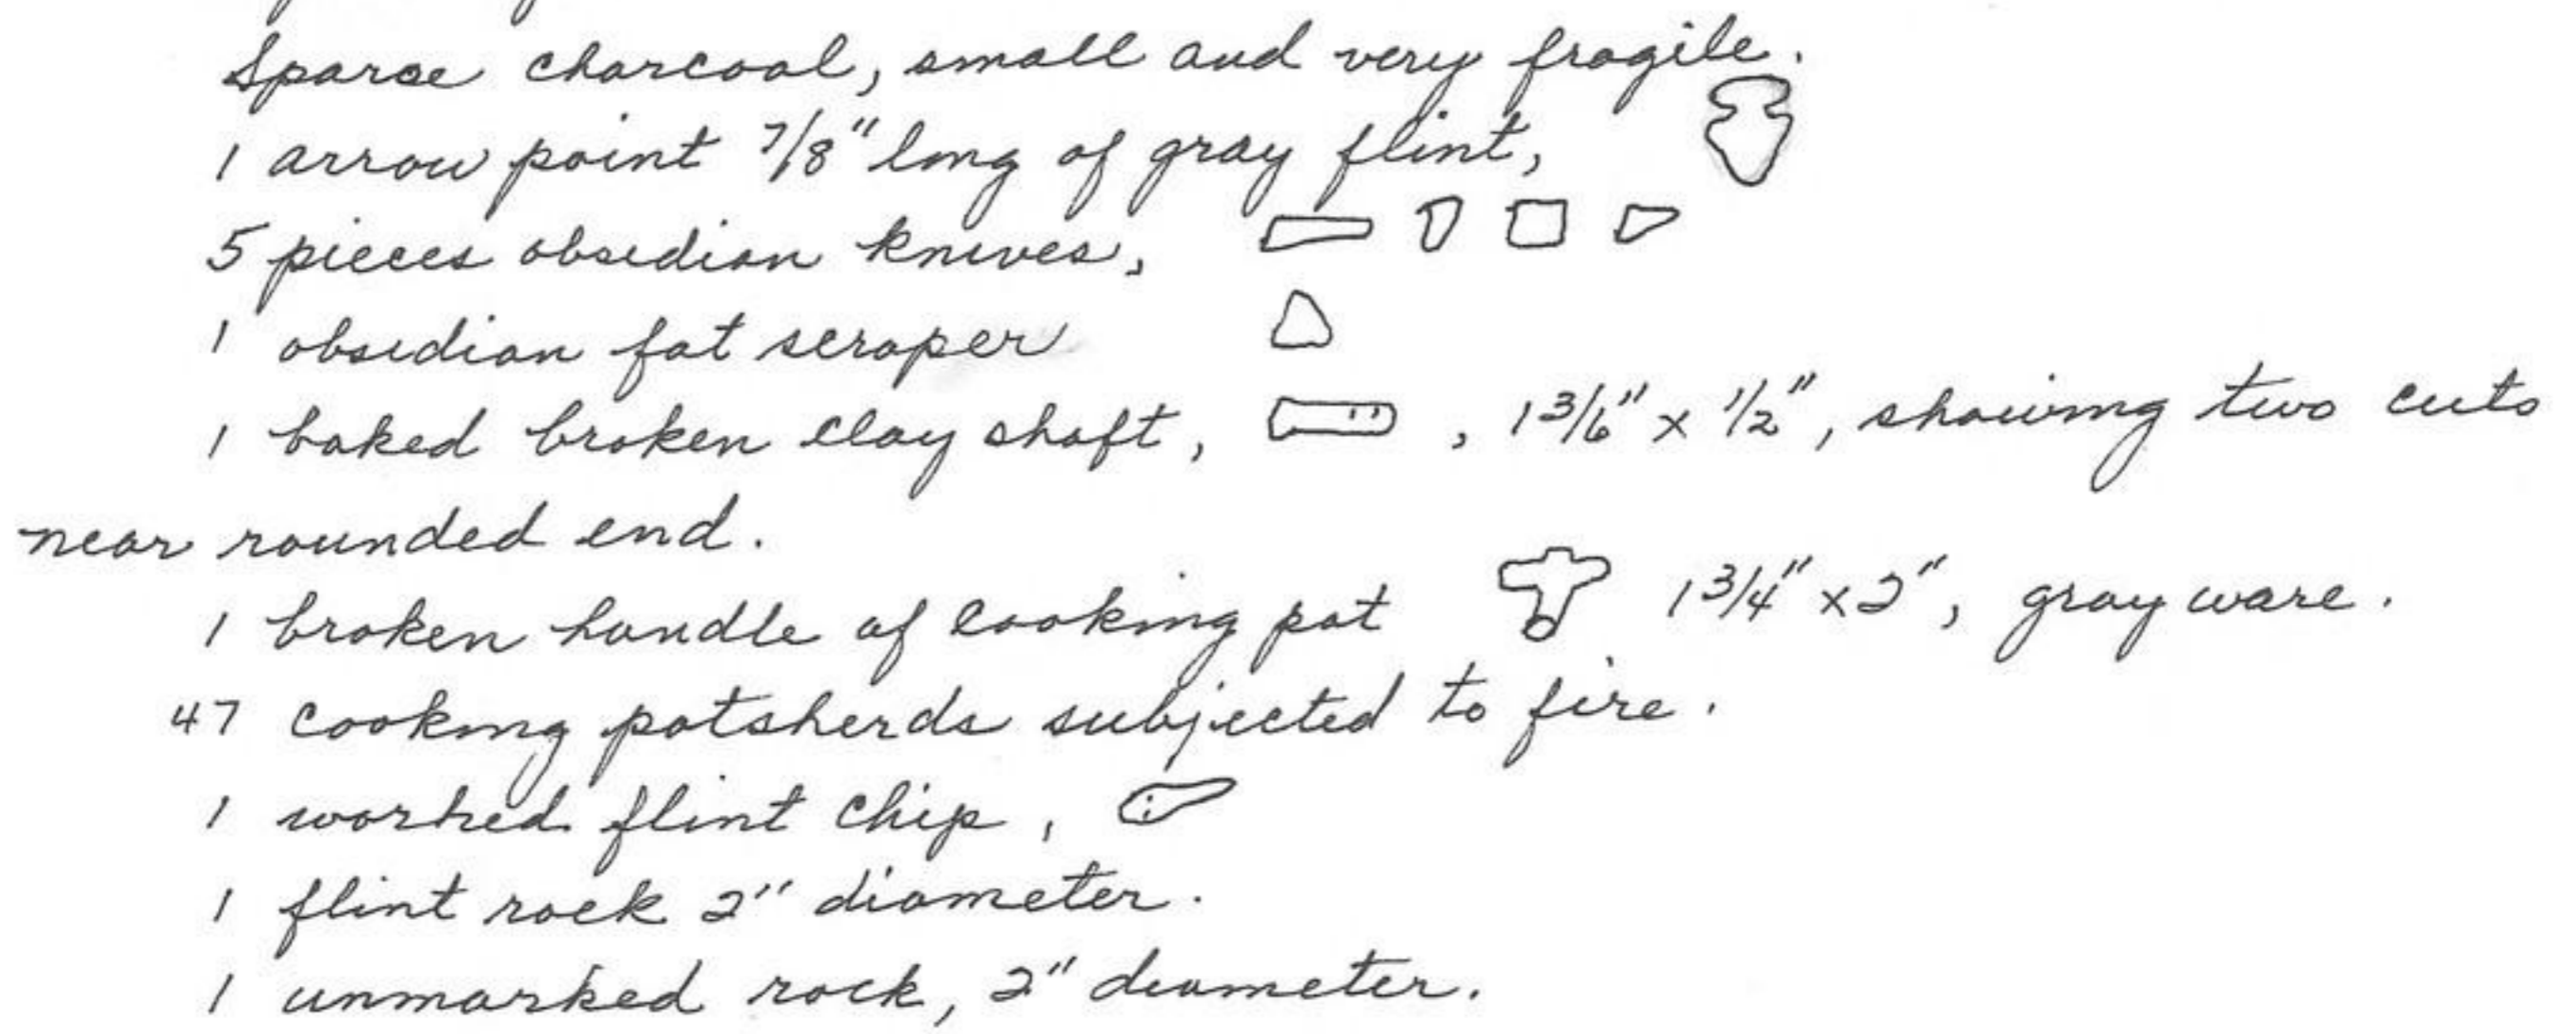 Sparce charcoal, small and very fragile.
1 arrow point 7/8" long of gray flint,
5 pieces obsidian knives,
1 obsidian fat scraper
1 baked broken clay shaft, , 1 3/6" x 1/2", showing two cuts
near rounded end.
1 broken handle of cooking pot 1 3/4" x 2", gray ware.
47 cooking potsherds subjected to fire.
1 worked flint chip,
1 flint rock 2" diameter.
1 unmarked rock, 2" diameter.